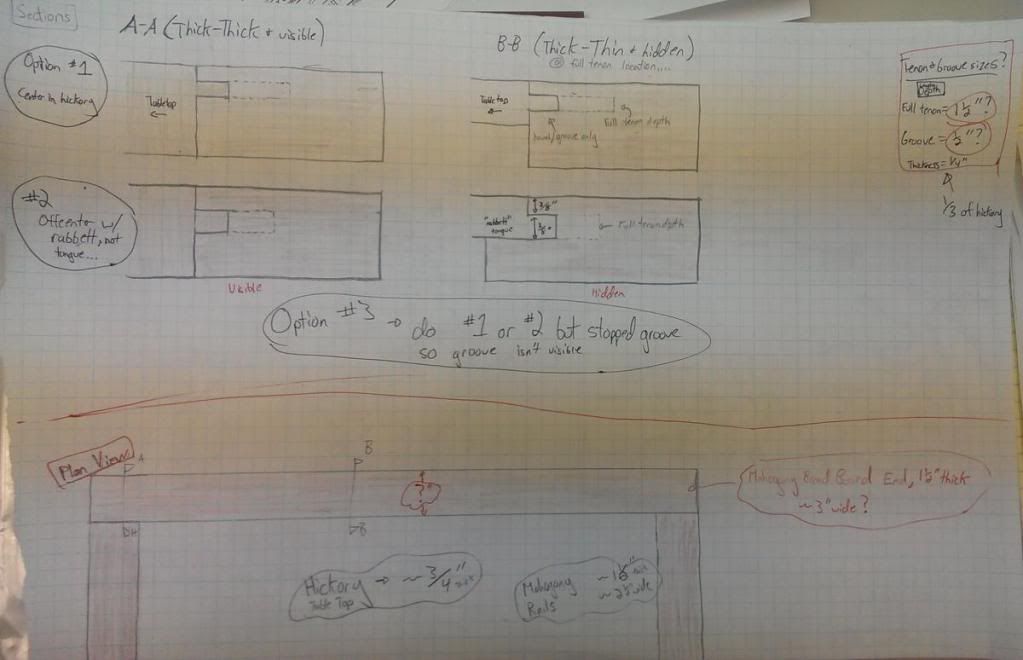 Sections
A-A (Thick-Thick & visible)
B-B (Thick-Thin & hidden)
@ full tenon location....
Option #1
Center in hickory
Tabletop
Table top
Full tenon depth
groove only
Tenon & Groove sizes?
Depth
Full tenon = 1 1/2"?
Groove = 1/2"?
Thickness = 1/4"
1/3 of hickory
#2
Offcenter w/
rabbett, not
tongue...
"rabbett"
tongue
3/8"
3/8"
Full tenon depth
Visible
Hidden
Option #3 → do #1 or #2 but stopped groove
so groove isn't visible
Plan View
A
B
?
Mahogany Bread Board End, 1 1/2" thick
~ 3" wide?
A
B
Hickory → ~ 3/4" thick
Table Top
Mahogany ~ 1 1/2" thick
Rails ~ 2 1/2" wide